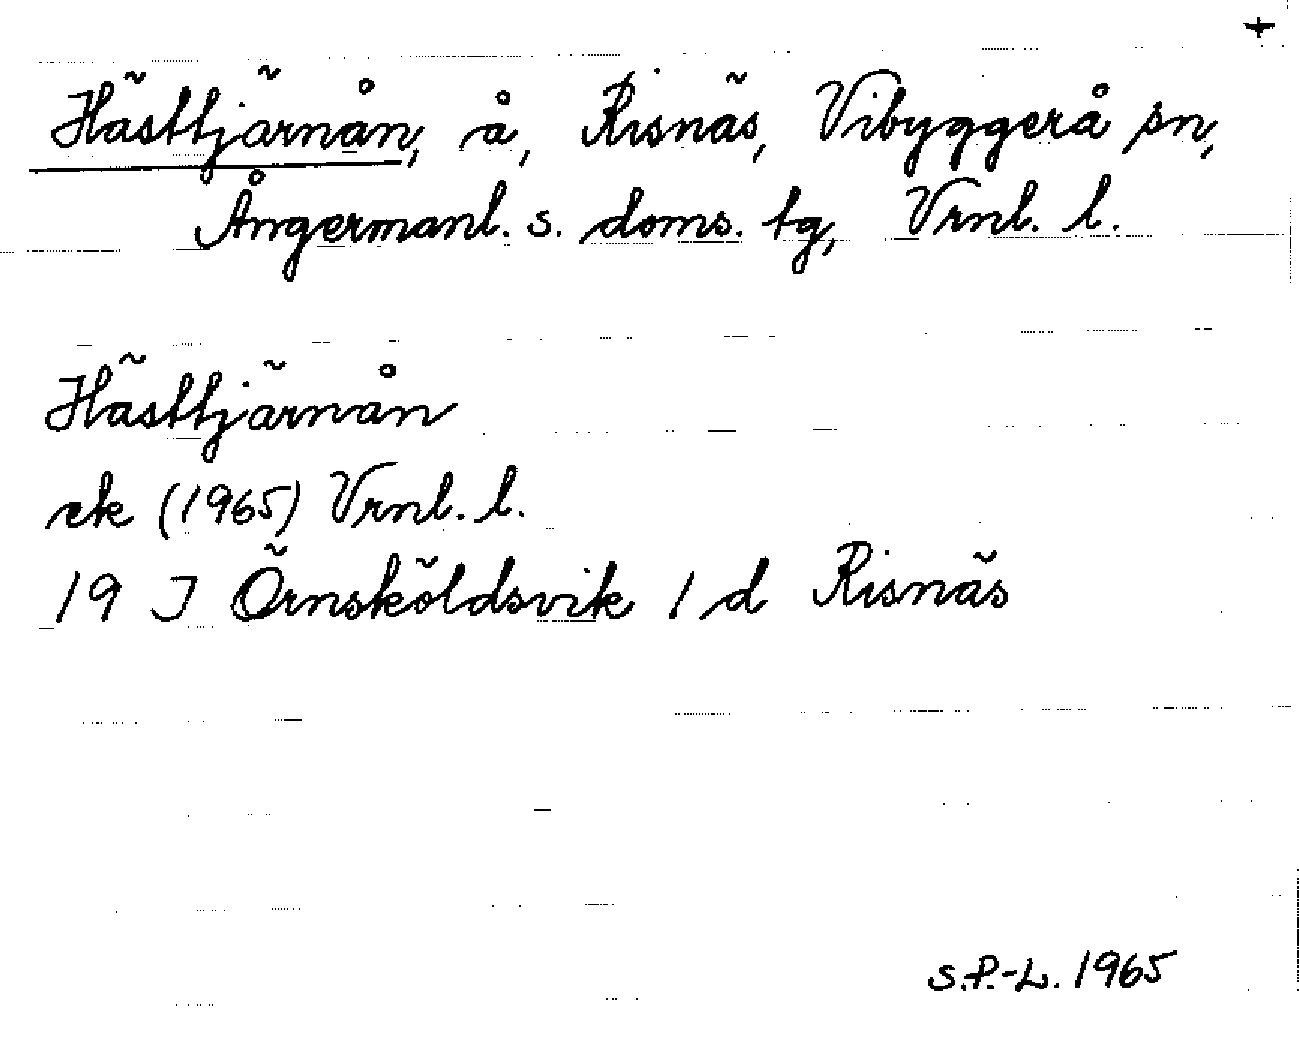 +
Hästtjärnån, å, Risnäs, Vibyggerå sn,
Ångermanl. s. doms. tg, Vrnl. l.
Hästtjärnån
ek (1965) Vrnl. l.
19 J Örnsköldsvik 1 d Risnäs
S.P.-L. 1965